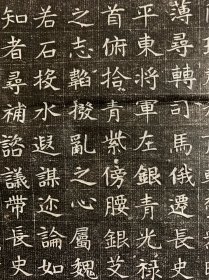 薄尋轉司馬俄遷長史
平東將軍左銀青光禄
首俯拾青紫傍腰銀艾
之志韜撥亂之心屬魏
若石投水遐謀迩論如
知者尋補諮議帶長史